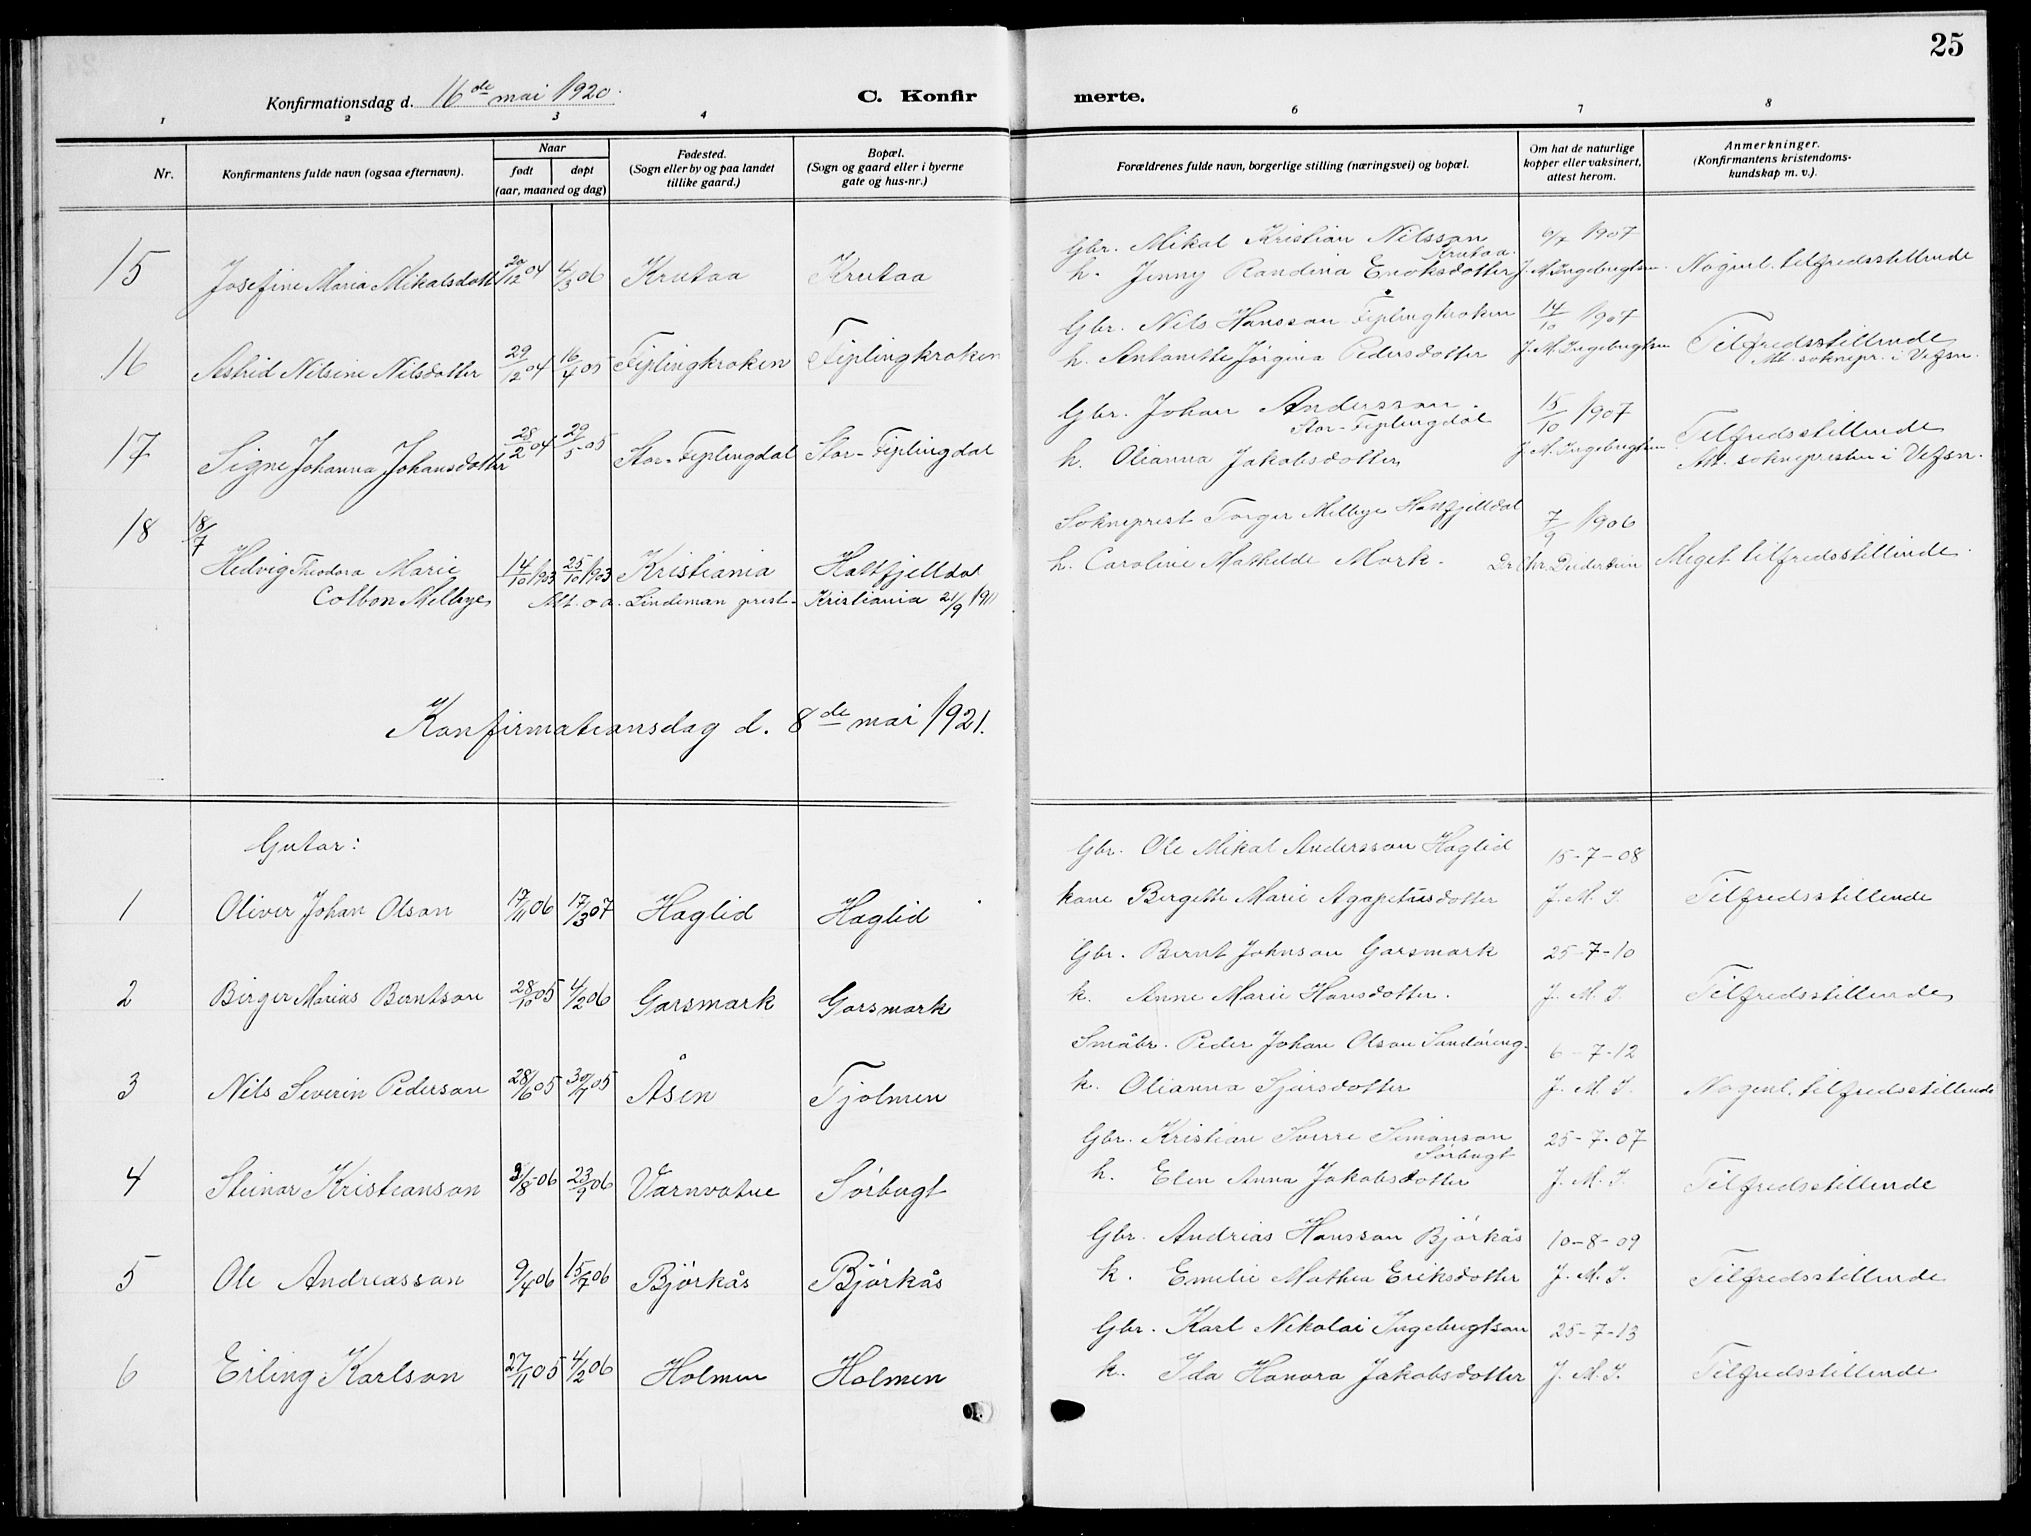 25
Konfirmationsdag d. 16de mai 1920.
C. Konfir
merte.
1 2 3 4 6 7 8
Nr.
Konfirmantens fulde navn (ogsaa efternavn).
Naar
født døpt
(aar, maaned og dag)
Fødested.
(Sogn eller by og paa landet
tillike gaard.)
Bopæl.
(Sogn og gaard eller i byerne
gate og hus-nr.)
Forældrenes fulde navn, borgerlige stilling (næringsvei) og bopæl.
Om hat de naturlige
kopper eller vaksinert,
attest herom.
Anmerkninger.
(Konfirmantens kristendoms-
kundskap m. v.).
Gbr. Mikal Kristian Nilsson 1907
Krutaa.
15 Josefine Maria Mikalsdott 20/12 04 4/3 06 Krutaa Krutaa h. Jenny Randina Enoksdotter J. M. Ingebrigtsen. Nogenl. tilfredsstillende
Gbr. Nils Hansson Fiplingkroken 14/10 1907
16 Astrid Nilsine Nilsdotter 29/12 04 16/4 05 Fiplingkroken Fiplingkroken h. Antonette Jørgina Pedersdotter J. M. Ingebrigtsen Tilfredsstillende
Att. soknepr. i Vefsn.
Gbr. Johan Andersson. 15/10 1907
Stor-Fiplingdal
17 Signe Johanna Johansdotter 28/2 04 29/5 05 Stor-Fiplingdal Stor-Fiplingdal h. Olianna Jakobsdotter J. M. Ingebrigtsen Tilfredsstillende
Att. sokneprsten i Vefsn.
18 18/7 Sokneprest Torger Melbye Hattfjelldal 7/9 1906
Hedvig Theodora Marie 14/10 1903 25/10 1903 Kristiania Hattfjelldal h. Caroline Mathilde Mork. Dr. Chr. Meget tilfredsstillende.
Colbon Melbye Att. o. a. Lindeman prest - Kristiania 21/9 1911
Konfirmationsdag d. 8de mai 1921.
Gutar:
Gbr. Ole Mikal Andersson Haglid 15-7-08
1 Oliver Johan Olson 17/11 06 17/3 07 Haglid Haglid kone Bergette Marie Agapetusdotter J. M. I. Tilfredsstillende
Gbr. Bernt Johnson Garsmark 25-7-10
2 Birger Marius Berntson 28/10 05 4/2 06 Garsmark Garsmark k. Anne Marie Hansdotter. J. M. I. Tilfredsstillende
Småbr. Peder Johan Olson Sandøreng. 6-7-12
3 Nils Severin Pederson 28/6 05 30/7 05 Åsen Tjolmen k. Olianna Sjursdotter J. M. I. Nogenl. tilfredsstillende
Gbr. Kristian Sverre Simonson 25-7-07
Sørbugt
4 Steinar Kristianson /8 06 23/9 06 Varnvatne Sørbugt h. Elen Anna Jakobsdotter J. M. I. Tilfredsstillende
Gbr. Andrias Hansson Bjørkås 10-8-09
5 Ole Andreasson 9/4 06 15/7 06 Bjørkås Bjørkås k. Emelie Mathea Eriksdotter J. M. I. Tilfredsstillende
Gbr. Karl Nikolai Ingebrigtson 25-7-13
6 Erling Karlson 27/11 05 4/2 06 Holmen Holmen k. Ida Hanora Jakobsdotter J. M. I. Tilfredsstillende